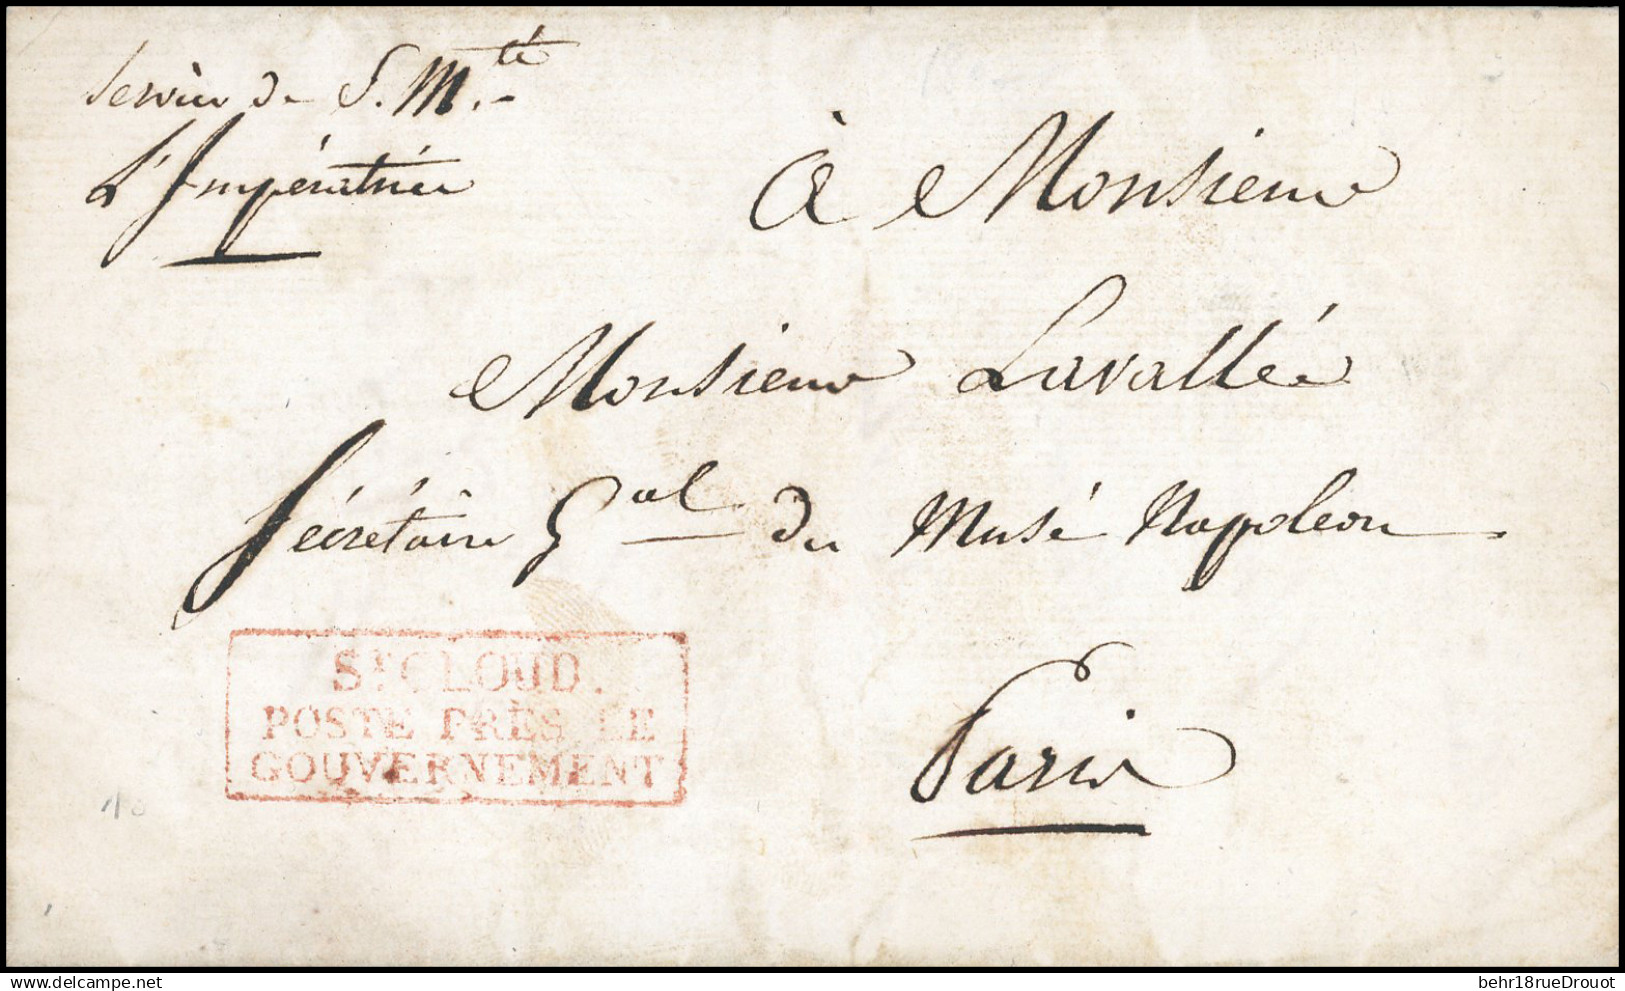 Service de S. M.té
L'Impératrice
à Monsieur
Monsieur Lavallée
Sécretaire Gal du Musé Napoleon
St CLOUD.
POSTE PRÈS LE
GOUVERNEMENT
Paris
behr18rueDrouot